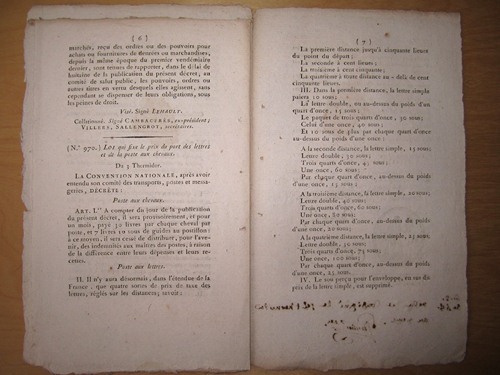 ( 6 )
marchés, reçu des ordres ou des pouvoirs pour
achats ou fournitures de denrées ou marchandises,
depuis la même époque du premier vendémiaire
dernier, sont tenues de rapporter, dans le délai de
huitaine de la publication du présent décret, au
comité de salut public, les pouvoirs, ordres ou
autres titres en vertu desquels elles agissent, sans
cependant se dispenser de leurs obligations, sous
les peines de droit.
Visé. Signé
Collationné. Signé CAMBACÉRÈS, ex-président;
VILLERS, secrétaires.
(N.° 970.) LOI qui fixe le prix de port des lettres
et de la poste aux chevaux.
Du 3 Thermidor.
LA CONVENTION NATIONALE, après avoir
entendu son comité des transports, postes et messageries,
DÉCRÈTE:
Poste aux chevaux.
ART. I.er A compter du jour de la publication
du présent décret, il sera provisoirement, et pour
un mois, payé 30 livres par chaque cheval par
poste, et 7 livres 10 sous de guides au postillon:
à ce moyen, il sera cessé de distribuer, pour l'avenir,
des indemnités aux maîtres des postes, à raison
de la différence entre leurs dépenses et leurs recettes.
Poste aux lettres.
II. Il n'y aura désormais, dans l'étendue de la
France, que quatre sortes de prix de taxe des
lettres, réglés sur les distances; savoir:
( 7 )
La première distance jusqu'à cinquante lieues
du point du départ;
La seconde à cent lieues;
La troisième à cent cinquante;
La quatrième à toute distance au-delà de cent
cinquante lieues.
III. Dans la première distance, la lettre simple
paiera 10 sous;
La lettre double, ou au-dessus du poids d'un
quart d'once, 15 sous;
Le paquet de trois quarts d'once, 30 sous;
Celui d'une once, 40 sous;
Et 10 sous de plus par chaque quart d'once
au-dessus du poids d'une once.
A la seconde distance, la lettre simple, 15 sous;
Lettre double, 30 sous;
Trois quarts d'once, 45 sous;
Une once, 60 sous;
Par chaque quart d'once, au-dessus du poids
d'une once, 15 sous.
A la troisième distance, la lettre simple, 20 sous;
Lettre double, 40 sous;
Trois quarts d'once, 60 sous;
Une once, 80 sous;
Par chaque quart d'once, au-dessus du poids
d'une once, 20 sous.
A la quatrième distance, la lettre simple, 25 sous;
Lettre double, 50 sous;
Trois quarts d'once, 75 sous;
Une once, 100 sous;
Par chaque quart d'once, au-dessus du poids
d'une once, 25 sous.
IV. Le sou perçu pour l'enveloppe, en sus du
prix de la lettre simple, est supprimé.